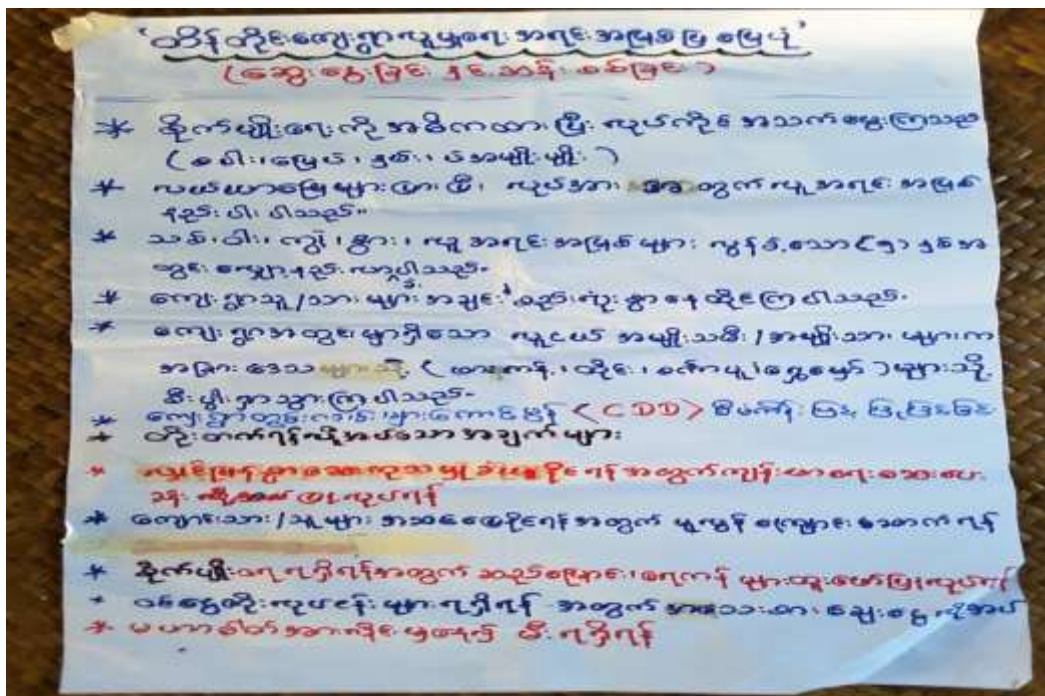 'ထိန်တိုင်းကျေးရွာလူမှုရေး အရင်းအမြစ်ပြ မြေပုံ'
(ဆွေးနွေးခြင်း နှင့် ဆန်းစစ်ခြင်း)
* စိုက်ပျိုးရေးကို အဓိကထားပြီး လုပ်ကိုင် အသက်မွေးကြသည်
(စပါး၊ မြေပဲ၊ နှမ်း၊ ပဲအမျိုးမျိုး)
* လယ်ယာမြေများ ပြီး၊ လုပ်အား အတွက် လူ့အရင်းအမြစ်
နည်းပါးပါသည်။
* သစ်၊ ဝါး၊ ကျွဲ၊ နွား၊ လူ့အရင်းအမြစ်များ လွန်ခဲ့သော (၅) နှစ်အ
တွင်း လျော့နည်းလာပါသည်။
* ကျေးရွာသူ/သားများ အချင်းချင်း စည်းလုံးစွာ နေထိုင်ကြပါသည်။
* ကျေးရွာအတွင်းမှာရှိသော လူငယ် အမျိုးသမီး/အမျိုးသား များက
အခြားဒေသများသို့ (ထားကန်၊ ထိုင်း၊ စက်ာပူ၊ ရွှေမှော်) များသို့
စီးပွါးရှာသွားကြပါသည်။
* ကျေးရွာတွင်းလမ်းများကောင်းမွန် (CDD) စီမံကိန်း
* တိုးတက်ရန်လိုအပ်သော အချက်များ
* လျှင်မြန်စွာဆေးကုသမှုခံယူနိုင်ရန် အတွက် ကျန်းမာရေးဆေးပေး
ခန်း ပြုလုပ်ရန်
* ကျောင်းသား/သူများ အဆင်ပြေနိုင်ရန်အတွက် မူလွန် ကျောင်းဆောက်ရန်
* စိုက်ပျိုးရေရရှိရန်အတွက် ဆည်မြောင်း၊ ရေကန် များတူးဖော်ပြုလုပ်ရန်
* ဝင်ငွေတိုးလုပ်ငန်းများရရှိရန် အတွက် အသေးစား ချေးငွေ လိုအပ်
* မဟာဓါတ်အားလိုင်းမှနေ၍ မီးရရှိရန်